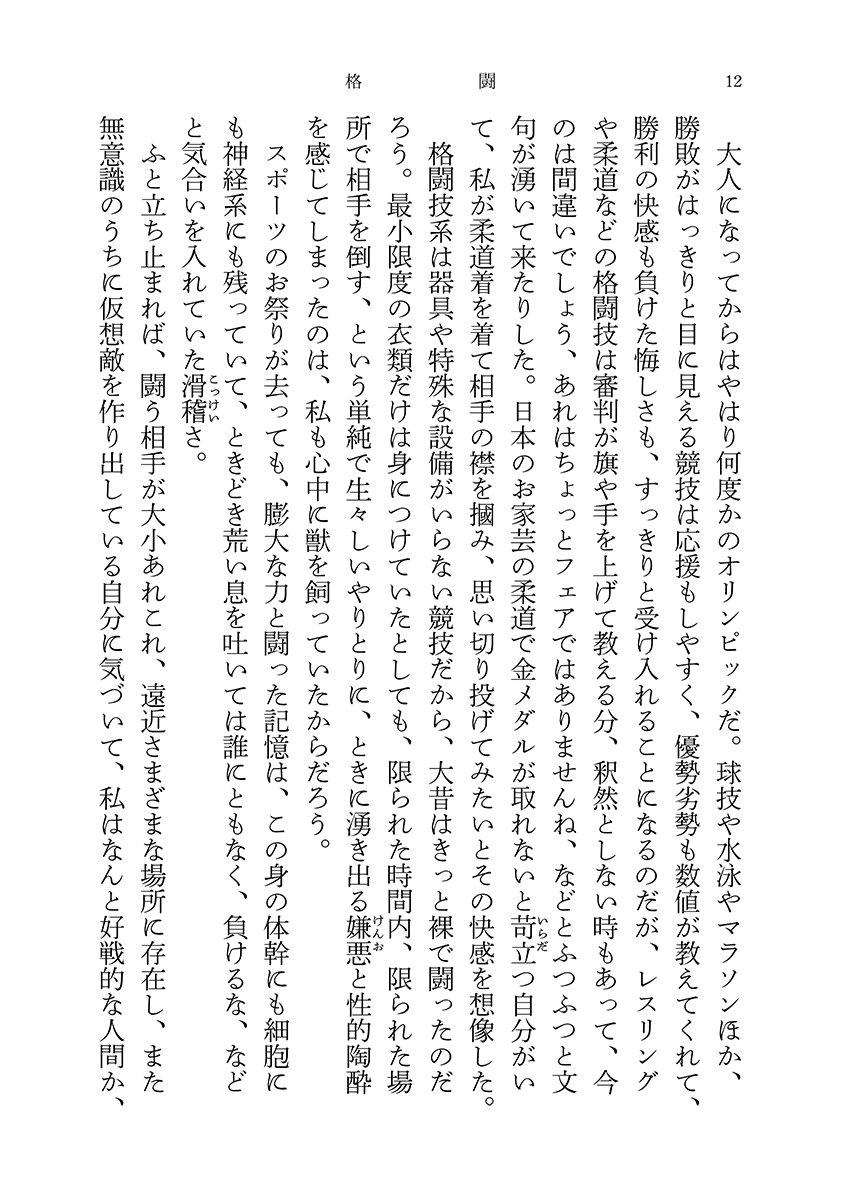 格闘
12
大人になってからはやはり何度かのオリンピックだ。球技や水泳やマラソンほか、
勝敗がはっきりと目に見える競技は応援もしやすく、優勢劣勢も数値が教えてくれて、
勝利の快感も負けた悔しさも、すっきりと受け入れることになるのだが、レスリング
や柔道などの格闘技は審判が旗や手を上げて教える分、釈然としない時もあって、今
のは間違いでしょう、あれはちょっとフェアではありませんね、などとふつふつと文
句が湧いて来たりした。日本のお家芸の柔道で金メダルが取れないと苛立つ自分がい
いらだ
て、私が柔道着を着て相手の襟を摑み、思い切り投げてみたいとその快感を想像した。
格闘技系は器具や特殊な設備がいらない競技だから、大昔はきっと裸で闘ったのだ
ろう。最小限度の衣類だけは身につけていたとしても、限られた時間内、限られた場
所で相手を倒す、という単純で生々しいやりとりに、ときに湧き出る嫌悪と性的陶酔
けんお
を感じてしまったのは、私も心中に獣を飼っていたからだろう。
スポーツのお祭りが去っても、膨大な力と闘った記憶は、この身の体幹にも細胞に
も神経系にも残っていて、ときどき荒い息を吐いては誰にともなく、負けるな、など
と気合いを入れていた滑稽さ。
こっけい
ふと立ち止まれば、闘う相手が大小あれこれ、遠近さまざまな場所に存在し、また
無意識のうちに仮想敵を作り出している自分に気づいて、私はなんと好戦的な人間か、